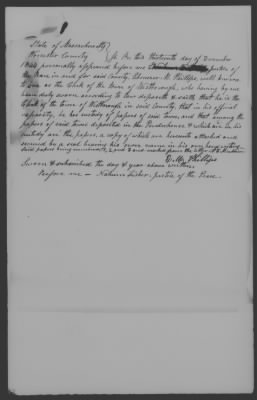 State of Massachusetts)
Worcester County ) ss. On this thirteenth day of December
1844 personally appeared before me justice of
the Peace in and for said County, Ebenezer M. Phillips, well known
to me as the Clerk of the town of Westborough, who having by me
been duly sworn according to law deposeth & saith that he is the
Clerk of the town of Westborough in said County, that in his official
capacity, he has custody of papers of said town, and that among the
papers of said town deposited in the & which are in his
custody are the papers, a copy of which are hereunto attached and
secured by a seal bearing his own name in his own
said papers being numbered 1, 2 and 3 and marked
E. M. Phillips
Sworn & subscribed the day & year above written
Before me - Nahum Fisher, justice of the Peace.